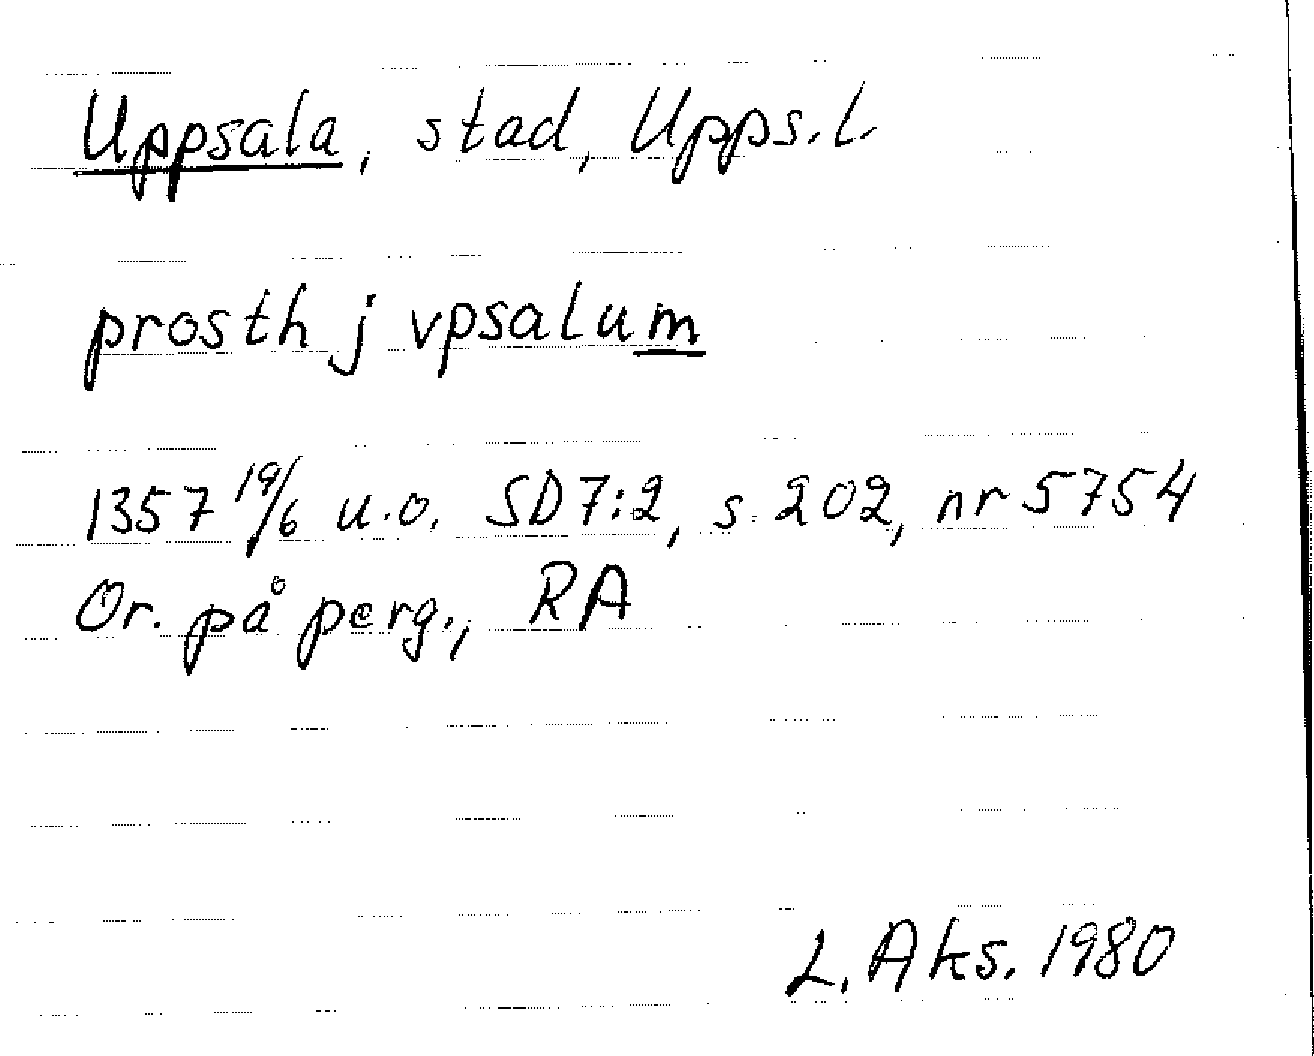 Uppsala, stad, Upps.L.
prosth j vpsalum
1357 19/6 u.o. SD7:2, s. 202, nr 5754
Or. på perg., RA
L. Aks. 1980